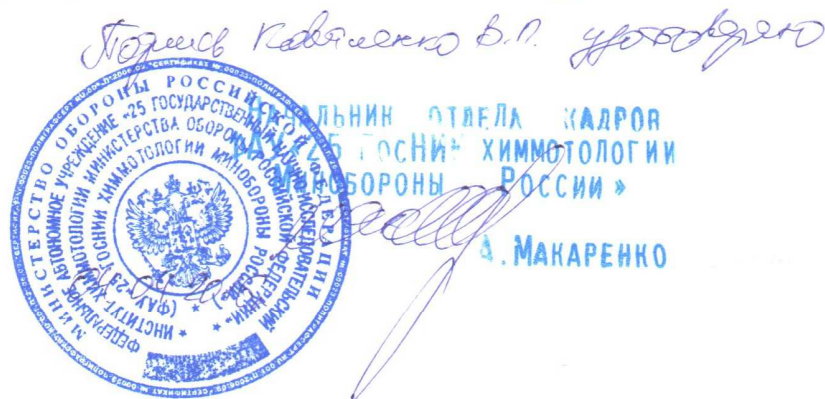 Подпись Коваленко В.П. удостоверяю
НАЧАЛЬНИК ОТДЕЛА КАДРОВ
ФАУ «25 ГосНИИ ХИММОТОЛОГИИ
МИНОБОРОНЫ РОССИИ»
А. МАКАРЕНКО
МИНИСТЕРСТВО ОБОРОНЫ РОССИЙСКОЙ ФЕДЕРАЦИИ
ФЕДЕРАЛЬНОЕ АВТОНОМНОЕ УЧРЕЖДЕНИЕ «25 ГОСУДАРСТВЕННЫЙ НАУЧНО-ИССЛЕДОВАТЕЛЬСКИЙ
ИНСТИТУТ ХИММОТОЛОГИИ МИНИСТЕРСТВА ОБОРОНЫ РОССИЙСКОЙ ФЕДЕРАЦИИ»
(ФАУ «25 ГОСНИИ ХИММОТОЛОГИИ МИНОБОРОНЫ РОССИИ»)